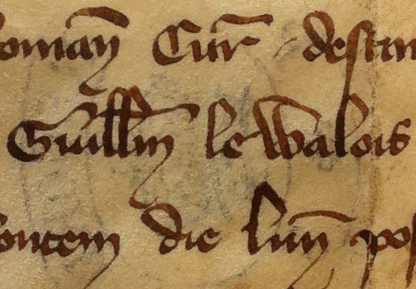 oman̄ Cur̄ destin
Guill̄m le Walois
ontem die lun̄ pos